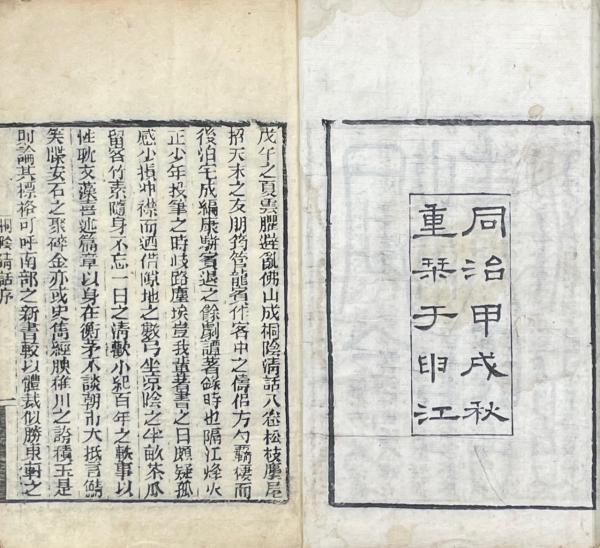 同治甲戌秋
重栞于申江
戊午之夏雲臞避亂佛山成桐陰清話八卷松枝麈尾
招天末之友朋筠管龍賓作客中之儔侶方勺霸棲而
後泊宅成編康駢賓退之餘劇譚著錄時也隔江烽火
正少年投筆之時歧路塵埃豈我輩著書之日頗疑孤
感少損冲襟而迺借隙地之數弓坐凉陰之半畝茶瓜
留客竹素隨身不忘一日之清歡小紀百年之軼事以
性耽文藻喜述篇章以身在衡茅不談朝市大抵言鯖
笑喋安石之聚碎金亦或史雋經腴稚川之誇積玉是
則論其標格可呼南部之新書較以體裁似勝東軒之
桐陰清話序 一